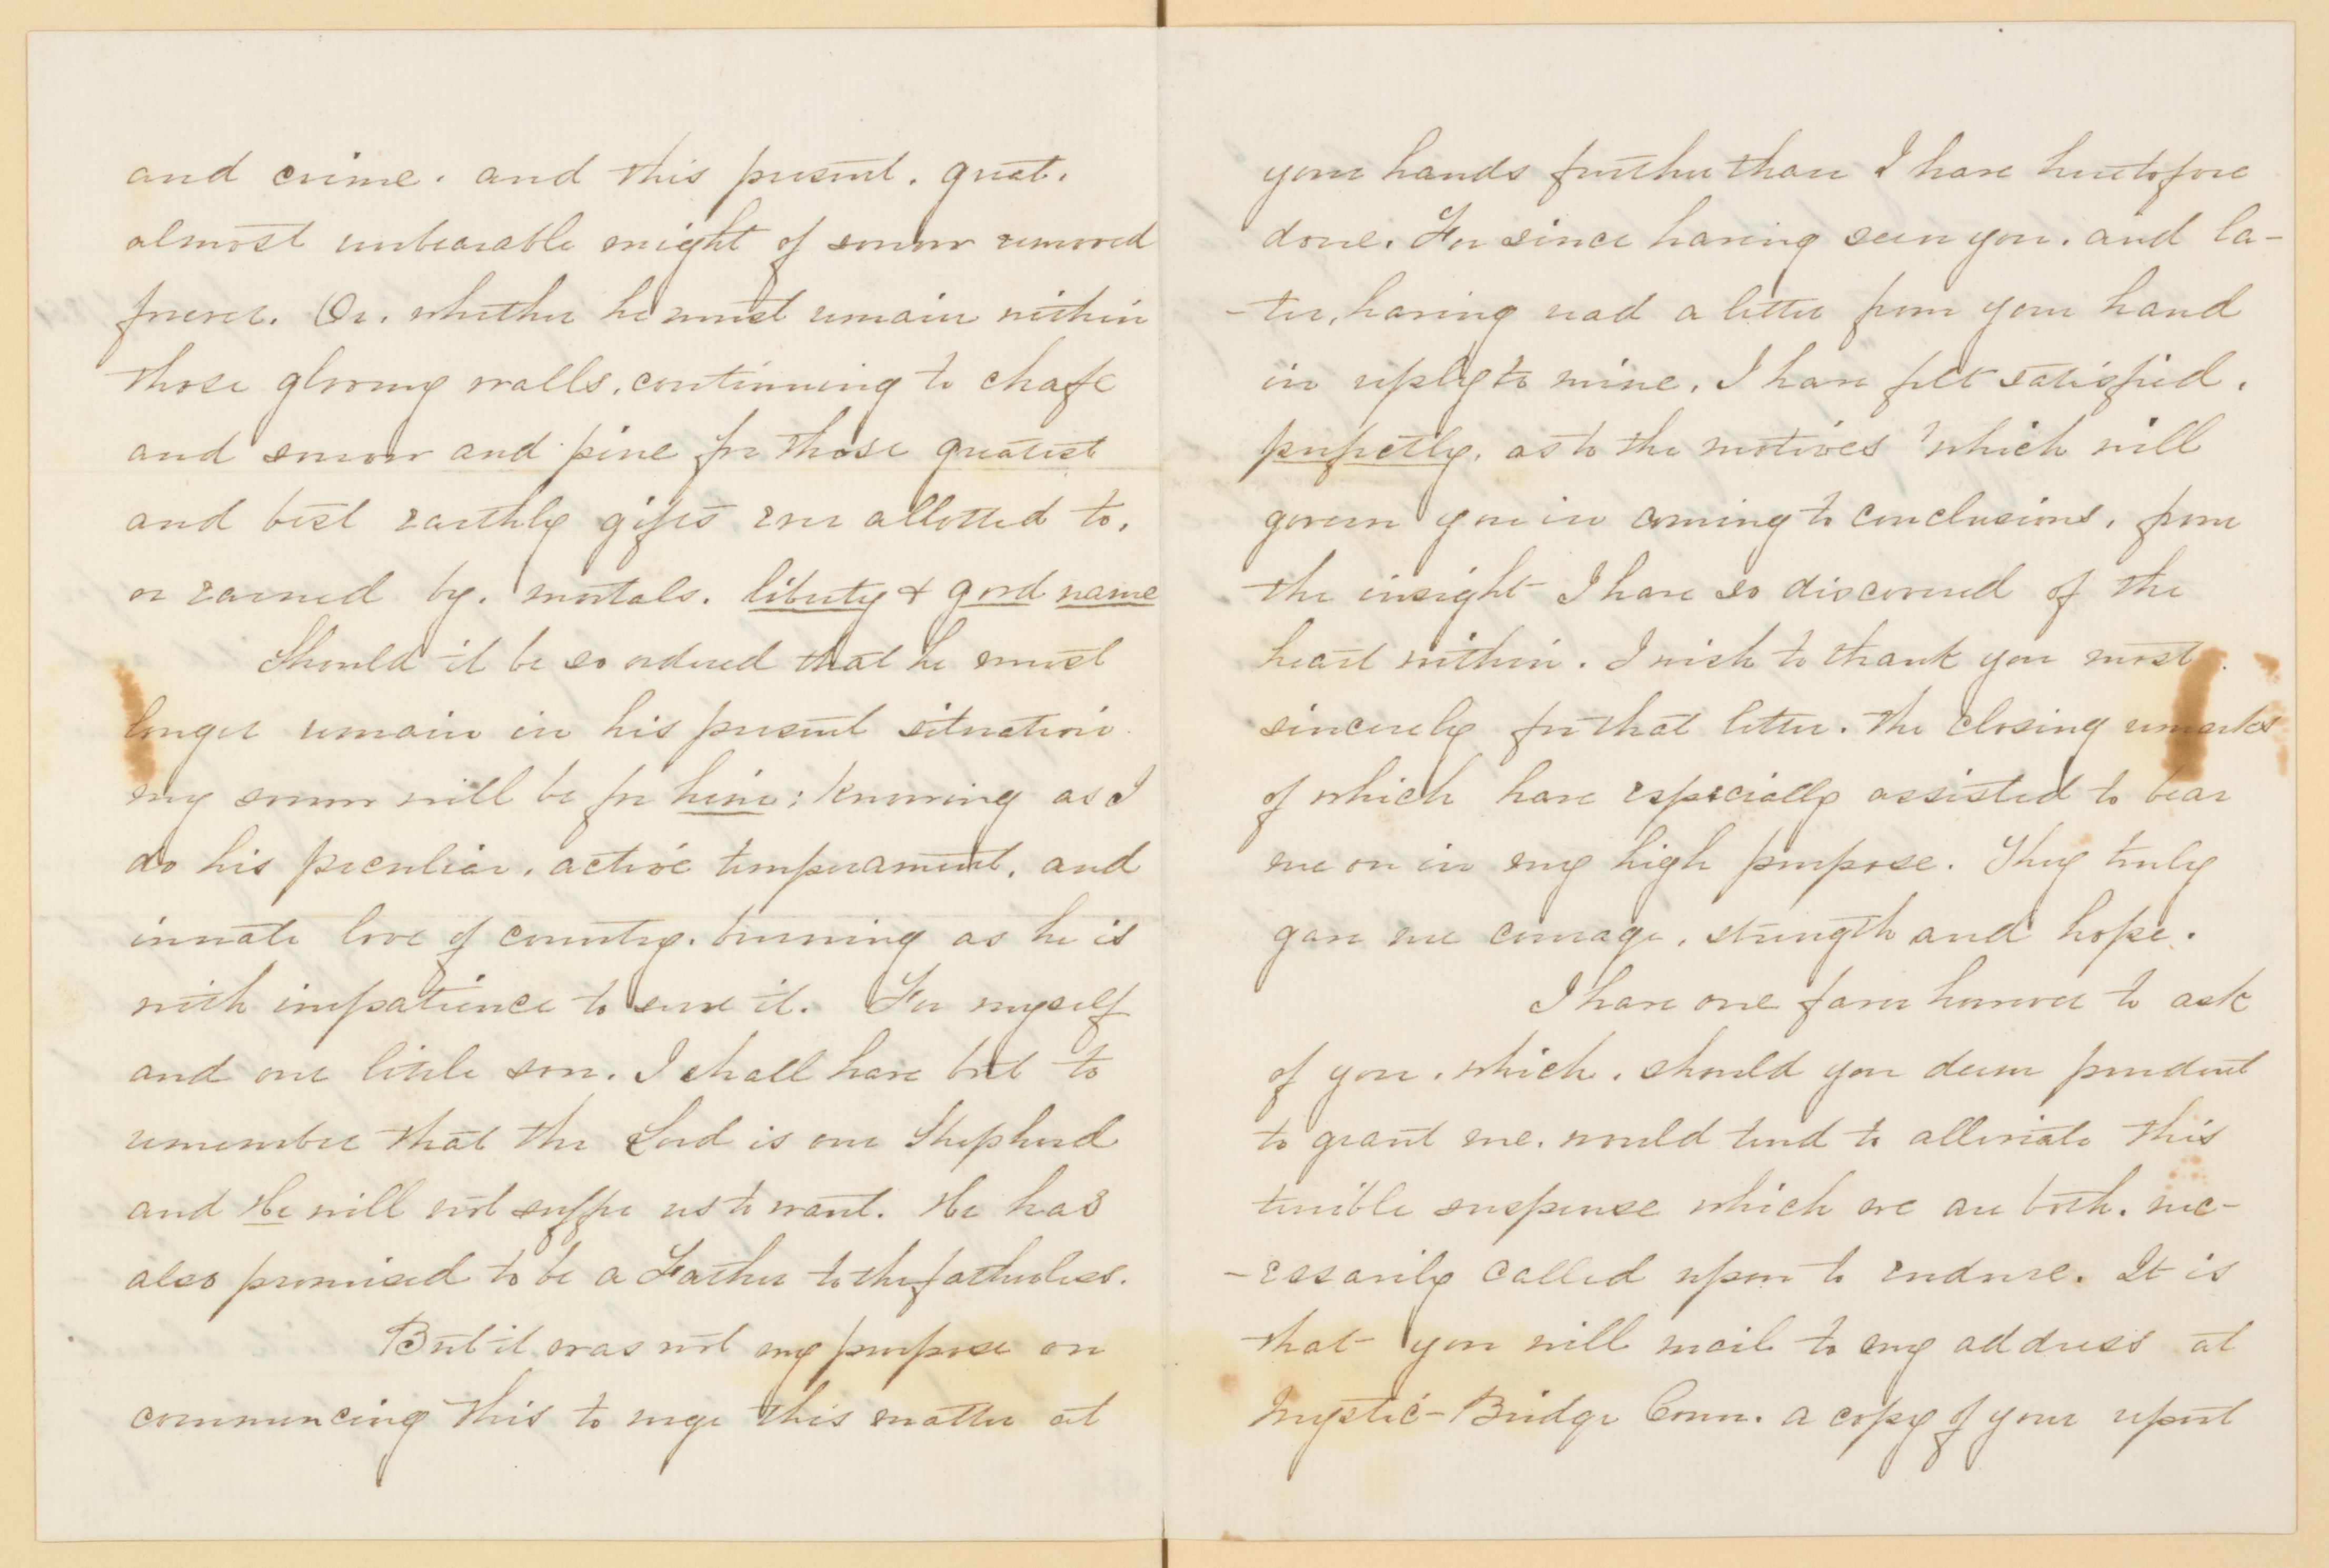 and crime. and this present. great.
almost unbearable weight of sorrow removed
forever. Or, whether he must remain within
those gloomy walls, continuing to chafe
and sorrow and pine for those greatest
and best earthly gifts ever allotted to,
or earned by, mortals. liberty & good name
Should it be so ordered that he must
longer remain in his present situation
my sorrow will be for him; knowing as I
do his peculiar, active temperament, and
innate love of country. burning as he is
with impatience to serve it. For myself
and our little son. I shall have but to
remember that the Lord is our Shepherd
and He will not suffer us to want. He has
also promised to be a Father to the fatherless.
But it was not my purpose on
commencing this to urge this matter at
your hands further than I have heretofore
done. For since having seen you. and la-
-ter, having read a letter from your hand
in reply to mine, I have felt satisfied,
perfectly, as to the motives which will
govern you in coming to conclusions, from
the insight I have so discovered of the
heart within. I wish to thank you most
sincerely for that letter. The closing remarks
of which have especially assisted to bear
me on in my high purpose. They truly
gave me courage, strength and hope.
I have one favor however to ask
of you, which, should you deem prudent
to grant me. would tend to alleviate this
terrible suspense which we are both, nec-
-essarily called upon to endure. It is
that you will mail to my address at
Mystic-Bridge Conn. a copy of your report